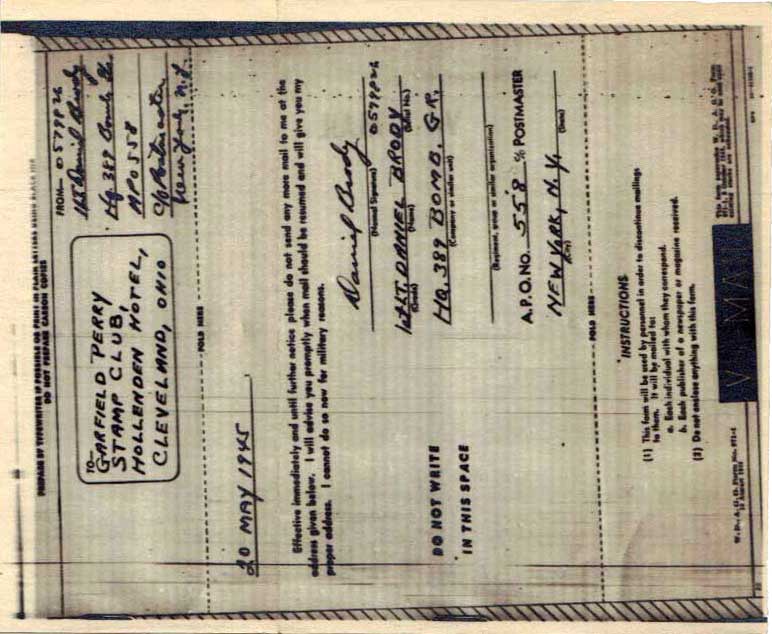 PREPARE BY TYPEWRITER IF POSSIBLE OR PRINT IN PLAIN LETTERS USING BLACK INK
DO NOT PREPARE CARBON COPIES
TO—
GARFIELD PERRY
STAMP CLUB,
HOLLENDEN HOTEL,
CLEVELAND, OHIO
FROM— 0579826
1st Lt Daniel Brody
Hq. 389 Bomb Gr.
APO 558
c/o Postmaster
New York, N.Y.
FOLD HERE FOLD HERE
20 MAY 1945
Effective immediately and until further notice please do not send any more mail to me at the
address given below. I will advise you promptly when mail should be resumed and will give you my
proper address. I cannot do so now for military reasons.
Daniel Brody
(Normal Signature)
1st LT. DANIEL BRODY 0579826
(Grade) (Name) (Serial No.)
DO NOT WRITE
IN THIS SPACE
HQ. 389 BOMB. GR.
(Company or similar unit)
(Regiment, group or similar organization)
A.P.O. NO. 558 % POSTMASTER
NEW YORK, N.Y.
(City) (State)
FOLD HERE FOLD HERE
INSTRUCTIONS
(1) This form will be used by personnel in order to discontinue mailings
to them. It will be mailed to:
a. Each individual with whom they correspond.
b. Each publisher of a newspaper or magazine received.
(2) Do not enclose anything with this form.
W. D., A. G. O. Form No. 971-1
V-MAIL